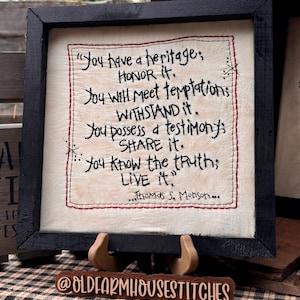 "you have a heritage;
HONOR it.
you will meet temptation;
WITHSTAND it.
you possess a testimony;
SHARE it.
you know the truth;
LIVE it."
...Thomas S. Monson...
@OLDFARMHOUSESTITCHES